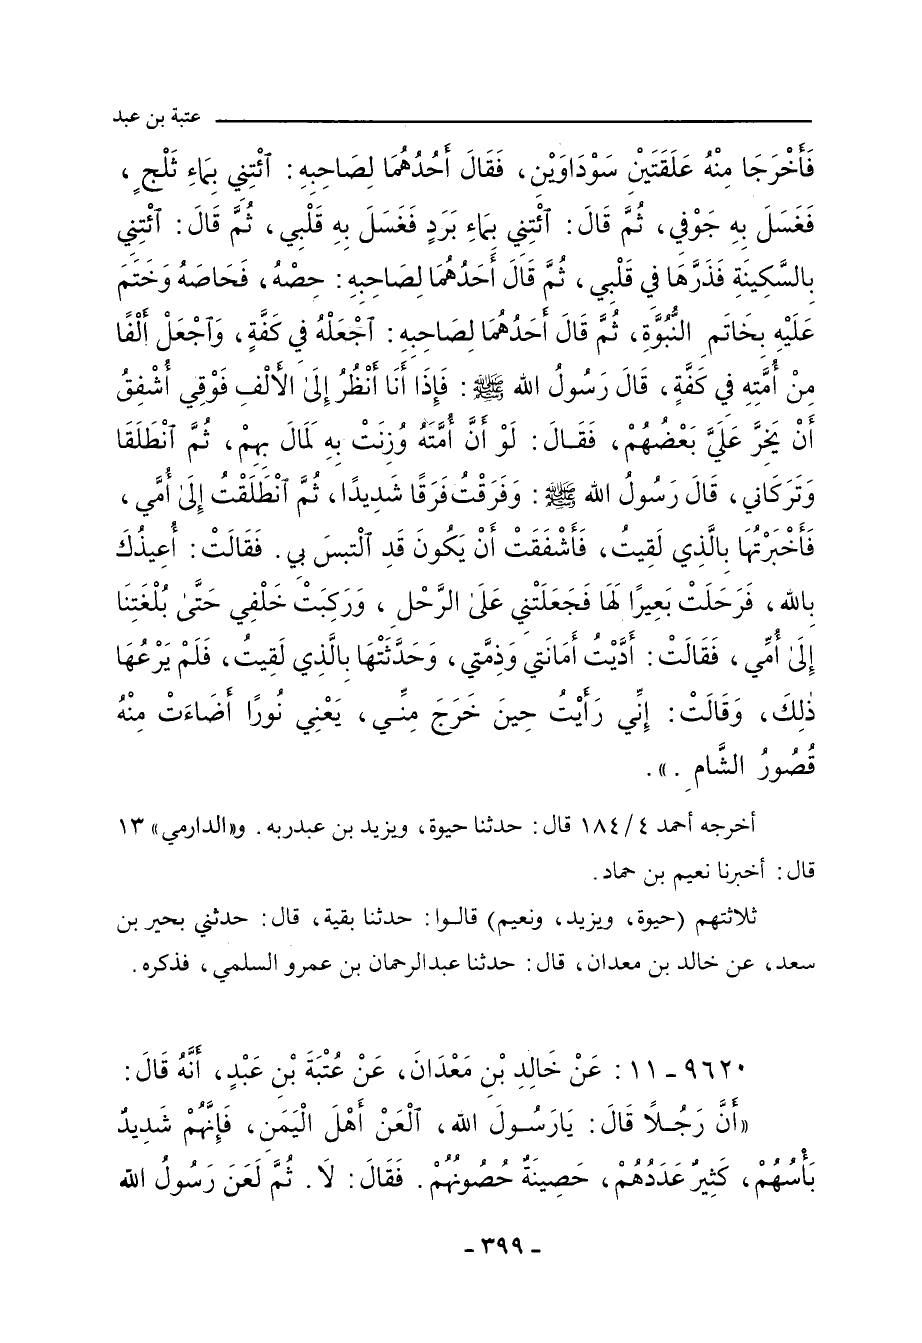 عتبة بن عبد
فَأَخْرَجَا مِنْهُ عَلَقَتَيْنِ سَوْدَاوَيْنِ، فَقَالَ أَحَدُهُمَا لِصَاحِبِهِ: ٱئْتِنِي بِمَاءِ ثَلْجٍ،
فَغَسَلَ بِهِ جَوْفِي، ثُمَّ قَالَ: ٱئْتِنِي بِمَاءِ بَرَدٍ فَغَسَلَ بِهِ قَلْبِي، ثُمَّ قَالَ: ٱئْتِنِي
بِالسَّكِينَةِ فَذَرَّهَا فِي قَلْبِي، ثُمَّ قَالَ أَحَدُهُمَا لِصَاحِبِهِ: حِصْهُ، فَحَاصَهُ وَخَتَمَ
عَلَيْهِ بِخَاتَمِ النُّبُوَّةِ، ثُمَّ قَالَ أَحَدُهُمَا لِصَاحِبِهِ: ٱجْعَلْهُ فِي كَفَّةٍ، وَٱجْعَلْ أَلْفًا
مِنْ أُمَّتِهِ فِي كَفَّةٍ، قَالَ رَسُولُ الله ﷺ: فَإِذَا أَنَا أَنْظُرُ إِلَىٰ الأَلْفِ فَوْقِي أُشْفِقُ
أَنْ يَخِرَّ عَلَيَّ بَعْضُهُمْ، فَقَـالَ: لَوْ أَنَّ أُمَّتَهُ وُزِنَتْ بِهِ لَمَالَ بِهِمْ، ثُمَّ ٱنْطَلَقَا
وَتَرَكَانِي، قَالَ رَسُولُ الله ﷺ: وَفَرَقْتُ فَرَقًا شَدِيدًا، ثُمَّ ٱنْطَلَقْتُ إِلَىٰ أُمِّي،
فَأَخْبَرْتُهَا بِالَّذِي لَقِيتُ، فَأَشْفَقَتْ أَنْ يَكُونَ قَدِ ٱلْتبِسَ بِي. فَقَالَتْ: أُعِيذُكَ
بِالله، فَرَحَلَتْ بَعِيرًا لَهَا فَجَعَلَتْنِي عَلَىٰ الرَّحْلِ، وَرَكِبَتْ خَلْفِي حَتَّىٰ بُلْغَتِنَا
إِلَىٰ أُمِّي، فَقَالَتْ: أَدَّيْتُ أَمَانَتِي وَذِمَّتِي، وَحَدَّثَتْهَا بِالَّذِي لَقِيتُ، فَلَمْ يَرُعْهَا
ذٰلِكَ، وَقَالَتْ: إِنِّي رَأَيْتُ حِينَ خَرَجَ مِنِّـي، يَعْنِي نُورًا أَضَاءَتْ مِنْهُ
قُصُورُ الشَّامِ.».
أخرجه أحمد ٤/ ١٨٤ قال: حدثنا حيوة، ويزيد بن عبدربه. و«الدارمي» ١٣
قال: أخبرنا نعيم بن حماد.
ثلاثتهم (حيوة، ويزيد، ونعيم) قالـوا: حدثنا بقية، قال: حدثني بحير بن
سعد، عن خالد بن معدان، قال: حدثنا عبدالرحمان بن عمرو السلمي، فذكره.
٩٦٢٠ - ١١: عَنْ خَالِدِ بْنِ مَعْدَانَ، عَنْ عُتْبَةَ بْنِ عَبْدٍ، أَنَّهُ قَالَ:
«أَنَّ رَجُـلاً قَالَ: يَارَسُـولَ الله، ٱلْعَنْ أَهْلَ الْيَمَنِ، فَإِنَّهُمْ شَدِيدٌ
بَأْسُهُمْ، كَثِيرٌ عَدَدُهُمْ، حَصِينَةٌ حُصُونُهُمْ. فَقَالَ: لاَ. ثُمَّ لَعَنَ رَسُولُ الله
- ٣٩٩ -